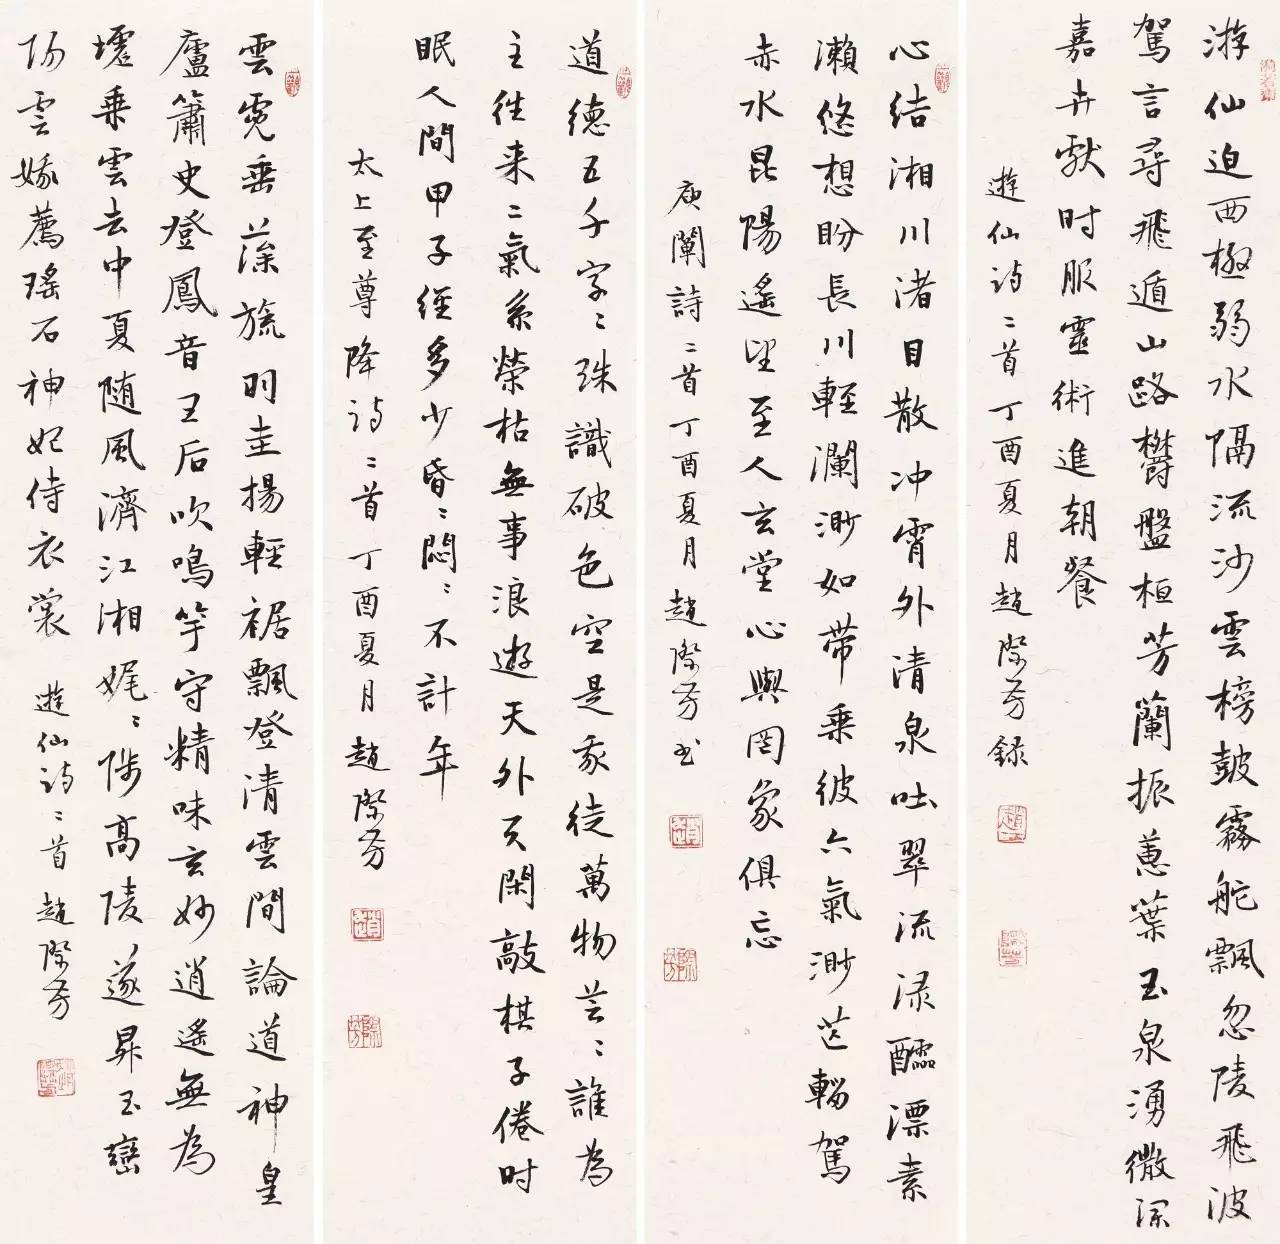 游仙迫西極弱水隔流沙雲榜鼓霧舵飄忽陵飛波
駕言尋飛遁山路欝盤桓芳蘭振蕙葉玉泉湧微瀾
嘉卉獻时服靈術進朝餐
遊仙诗二首丁酉夏月趙際芳録
心结湘川渚目散冲霄外清泉吐翠流渌醽漂素
瀨悠想盼長川輕瀾渺如带乘彼六氣渺茫輜駕
赤水昆陽遥望至人玄堂心與罔象俱忘
庾闡詩二首丁酉夏月趙際芳书
道德五千字〻殊識破色空是我徒萬物芸〻誰為
主往来二氣系榮枯無事浪遊天外天閑敲棋子倦时
眠人間甲子經多少昏〻悶〻不計年
太上至尊降诗二首丁酉夏月趙際芳
雲霓垂藻旒羽圭揚輕裾飄登清雲間論道神皇
廬簫史登鳳音王后吹鳴竽守精味玄妙逍遥無為
墟乘雲去中夏随風濟江湘娓〻陟高陵遂昇玉巒
阳雲娥薦瑶石神妃侍衣裳
遊仙诗二首趙際芳